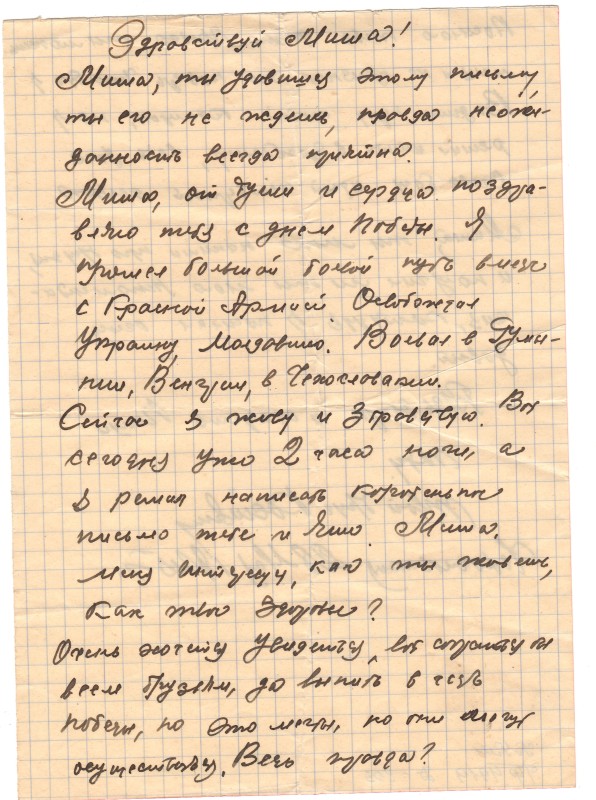 Здравствуй Миша!
Миша, ты удивишся этому письму,
ты его не ждешь, правда неожи-
данность всегда приятна.
Миша, от души и сердца поздра-
вляю тебя с днем Победы. Я
прошел большой боевой путь вместе
с Красной Армией Освобождал
Украину, Молдавию. Воевал в Румы-
нии, Венгрии, в Чехословакии.
Сейчас я живу и здравствую. Вот
сегодня уже 2 часа ночи, а
я решил написать коротенькое
письмо тебе и Яше. Миша,
меня интересует, как ты живешь,
Как твое здоровье?
Очень хочется увидеться, вот собраться бы
всем друзьям, да выпить в честь
победы, но это мечты, но они могут
осуществиться. Ведь правда?